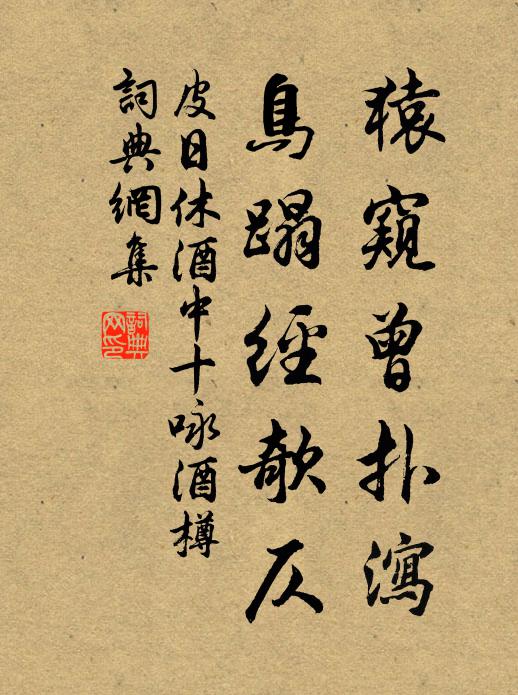 猿窺曾扑瀉
鳥蹋經欹仄
皮日休酒中十咏酒樽
詞典網集
詞典网印